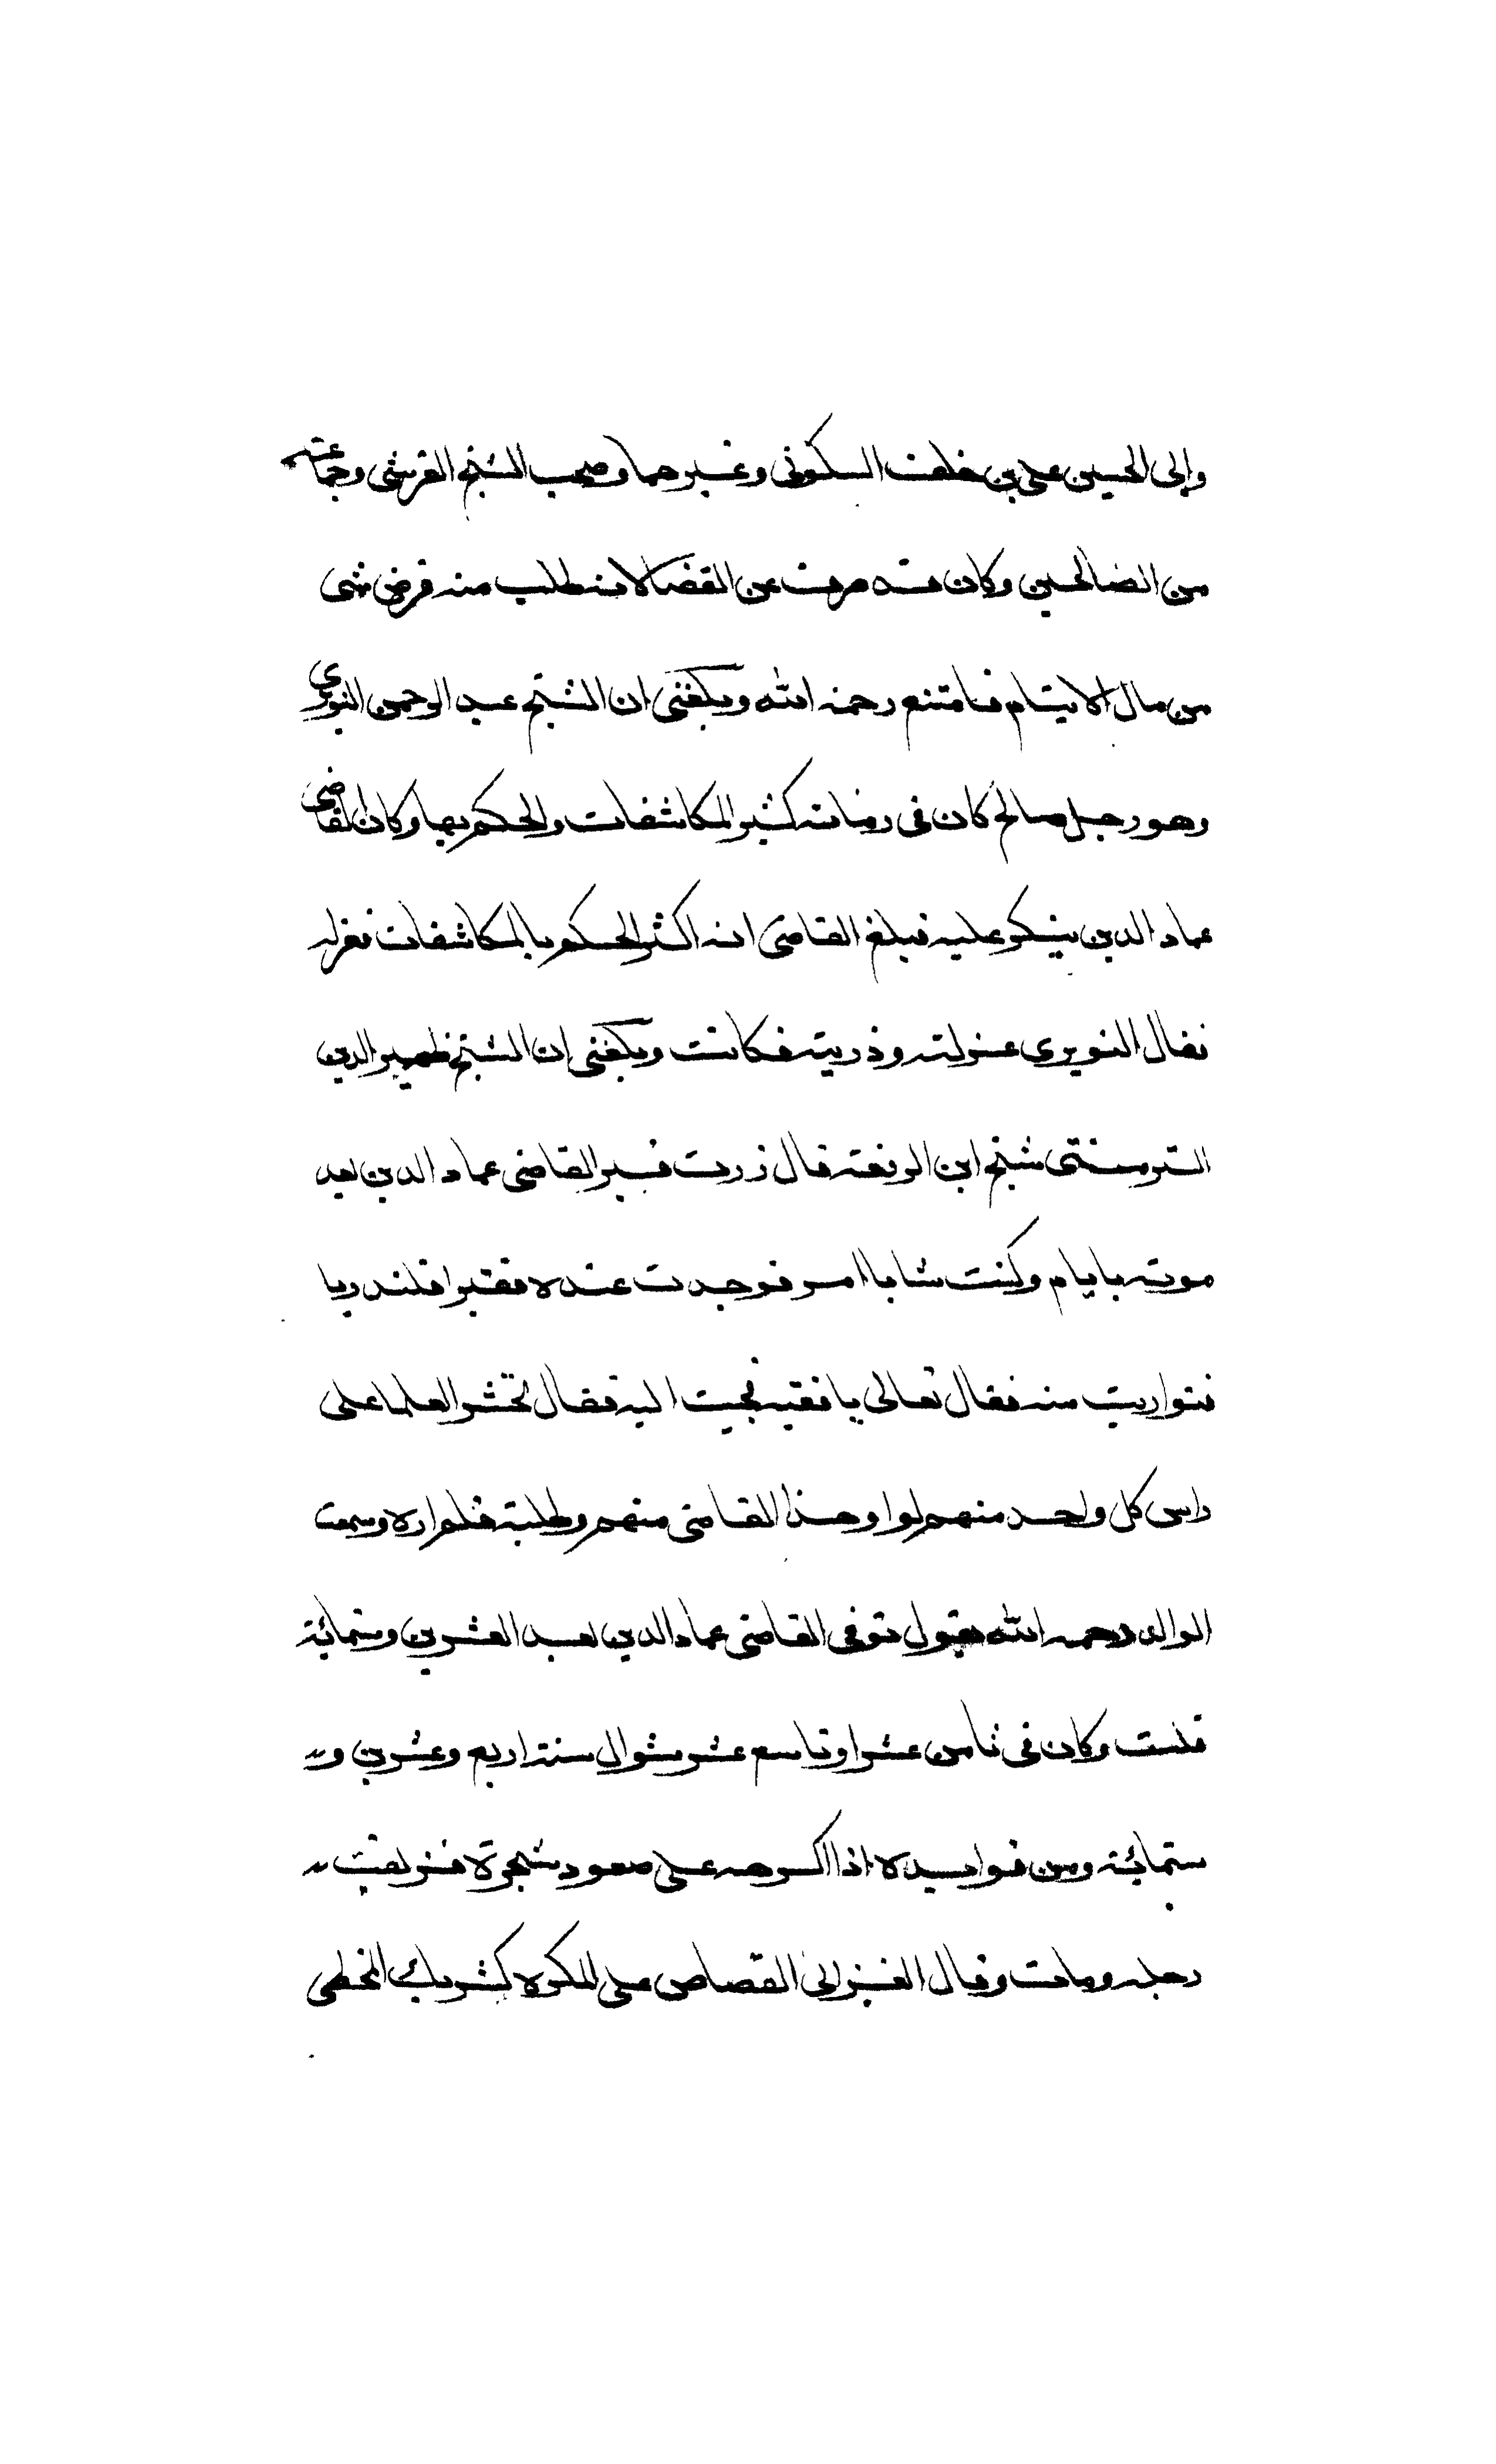 وابي الحسين علي بن خلف السكوني وغيرهما وصحب الشيخ القرشي وجماعة
من الصالحين وكان قد صرف عن القضا لانه طلب منه قرض شي
من مال الايتام فامتنع رحمه الله وبلغني ان الشيخ عبد الرحمن النويري
وهو رجل صالح كان في زمانه كثير المكاشفات والحكم بها وكان القاضي
عماد الدين ينكر عليه فبلغ القاضي انه اكثر الحكم بالمكاشفات فعزله
فقال النويري عزلته وذريته فكانت وبلغني ان الشيخ ظهير الدين
التزمنتي شيخ ابن الرفعة قال زرت قبر القاضي عماد الدين بعد
موته بايام وكنت شابا امرد فوجدت عنده فقيرا قلندريا
فتواريت منه فقال تعالى يا فقيه فجيت اليه فقال تحشر العلما على
راس كل واحد منهم لوا وهذا القاضي منهم وطلبته فلم اره وسمعت
الوالد رحمه الله يقول توفي القاضي عماد الدين بعد العشرين وستمائة
قلت وكان في ثامن عشر او تاسع عشر شوال سنة اربع وعشرين و
ستمائة ومن فوايده اذا اكره على صعود شجرة فزلقت
رجله ومات وقال الغزالي القصاص على المكره كشريك المخطي